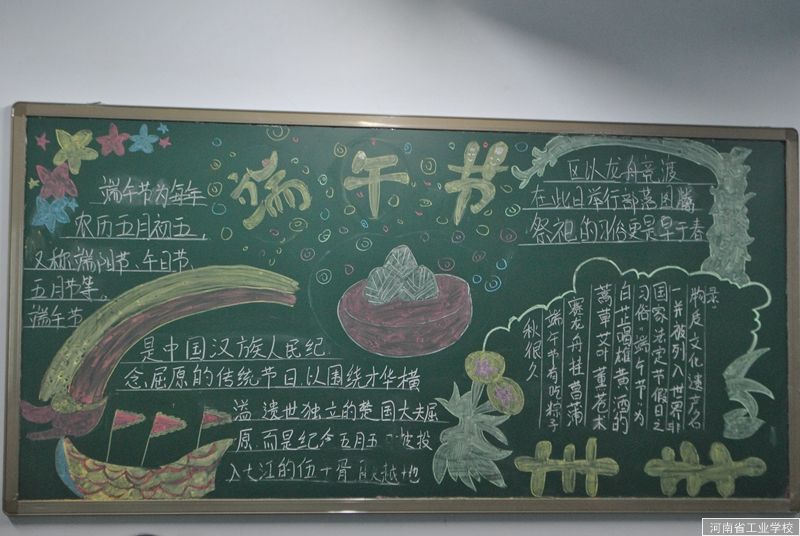 端午节
端午节为每年
农历五月初五,
又称端阳节、午日节、
五月节等。
端午节
是中国汉族人民纪
念屈原的传统节日,以围绕才华横
溢、遗世独立的楚国大夫屈
原,而是纪念五月五
入七江的伍
区以龙舟竞渡
在此日举行部落图腾
祭祀的习俗更是早于春
秋很久
端午节有吃粽子
赛龙舟挂菖蒲
蒿草艾叶薰苍术
白芷喝雄黄酒的
习俗。端午节为
国家法定节假日之
一并被列入世界非
物质文化遗产名
录
河南省工业学校